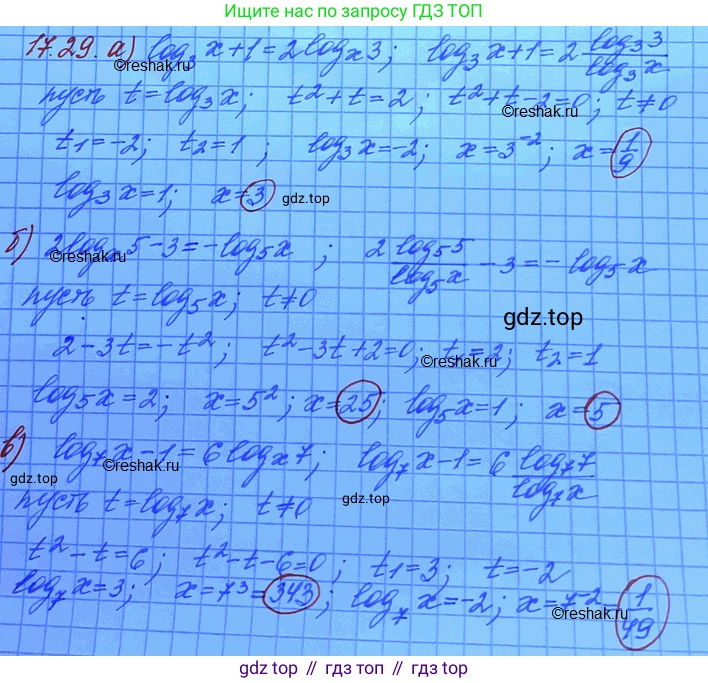 Ищите нас по запросу ГДЗ ТОП
17.29. а) log₃ x+1=2logₓ3; log₃ x+1=2 log₃3/log₃x
©reshak.ru ©reshak.ru
пусть t=log₃x; t²+t=2; t²+t-2=0; t≠0
©reshak.ru
t₁=-2; t₂=1; log₃x=-2; x=3⁻²; x=1/9
log₃x=1; x=3 gdz.top
б) 2logₓ5-3=-log₅x; 2 log₅5/log₅x -3=-log₅x
©reshak.ru
пусть t=log₅x; t≠0
gdz.top
2-3t=-t²; t²-3t+2=0; t₁=2; t₂=1
©reshak.ru
log₅x=2; x=5²; x=25; log₅x=1; x=5
в) log₇x-1=6logₓ7; log₇x-1=6 log₇7/log₇x
gdz.top ©reshak.ru
пусть t=log₇x; t≠0
gdz.top
t²-t=6; t²-t-6=0; t₁=3; t=-2
log₇x=3; x=7³=343; log₇x=-2; x=7⁻²=1/49
gdz top // гдз топ // gdz.top